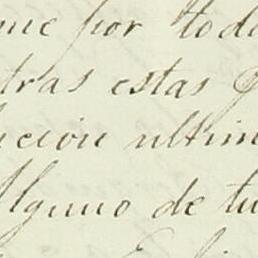 me por tod
tras estas
cion ultim
Alguno de tu